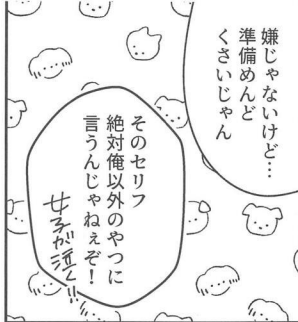 嫌じゃないけど…
準備めんど
くさいじゃん
そのセリフ
絶対俺以外のやつに
言うんじゃねぇぞ!
女子が泣く!!